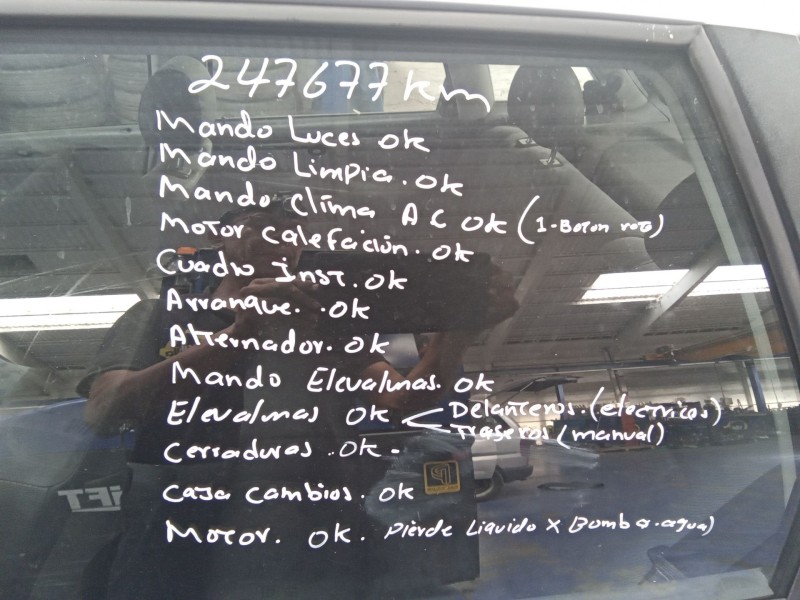 247677 km
Mando Luces ok
Mando Limpia. ok
Mando clima A C ok (1-Boton roto)
Motor calefación. ok
Cuadro Inst. ok
Arranque. .ok
Alternador. ok
Mando Elevalunas. ok
Elevalunas ok < Delanteros. (electricos)
Traseros (manual)
Cerraduras .ok -
Caja cambios. ok
Motor. ok. Pierde Liquido x Bomba-agua)